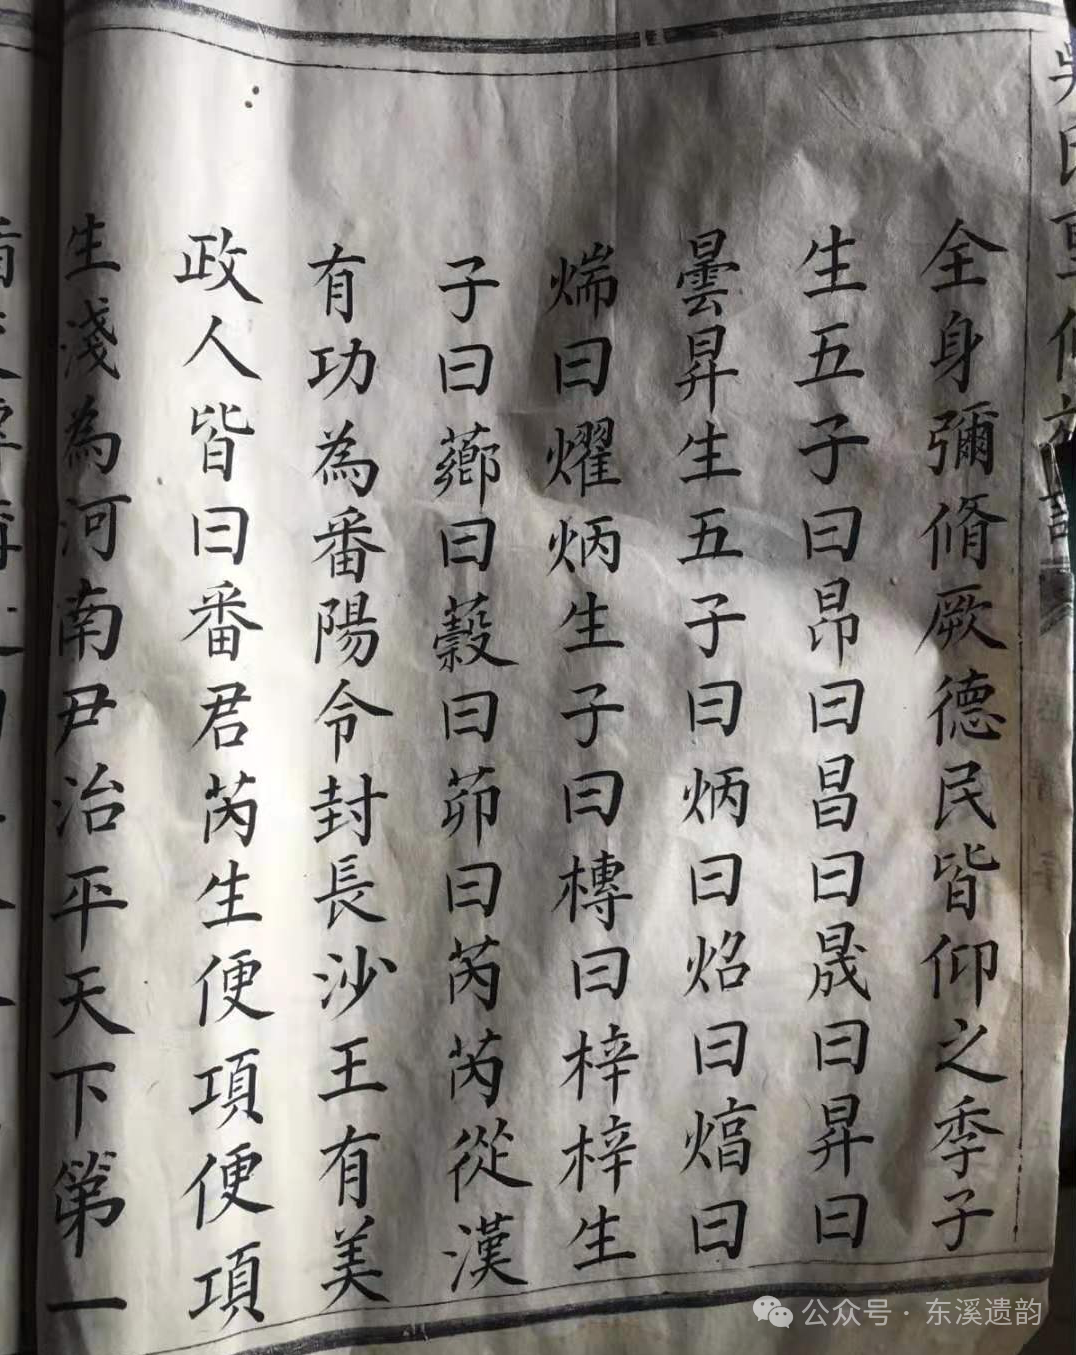 全身彌脩厥德民皆仰之季子
生五子曰昂曰昌曰晟曰昇曰
曇昇生五子曰炳曰焰曰熇曰
煓曰燿炳生子曰榑曰梓梓生
子曰薌曰蔱曰茆曰芮芮從漢
有功為番陽令封長沙王有美
政人皆曰番君芮生便項便項
生淺為河南尹治平天下第一
公众号·东溪遗韵